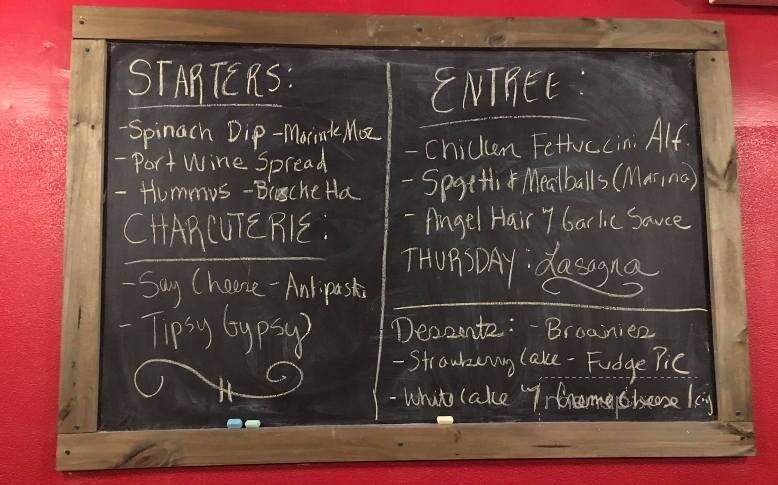 STARTERS:
-Spinach Dip -Marinate Moz
-Port Wine Spread
- Hummus -Bruschetta
CHARCUTERIE:
-Say Cheese - Antipasti
- Tipsy Gypsy
ENTREE:
- Chicken Fettuccini Alf.
- Spgetti & Meatballs (Marina)
- Angel Hair y Garlic Sauce
THURSDAY: Lasagna
Desserts: - Brownies
- Strawberry Cake - Fudge Pie
- White Cake y Creme Cheese Icing